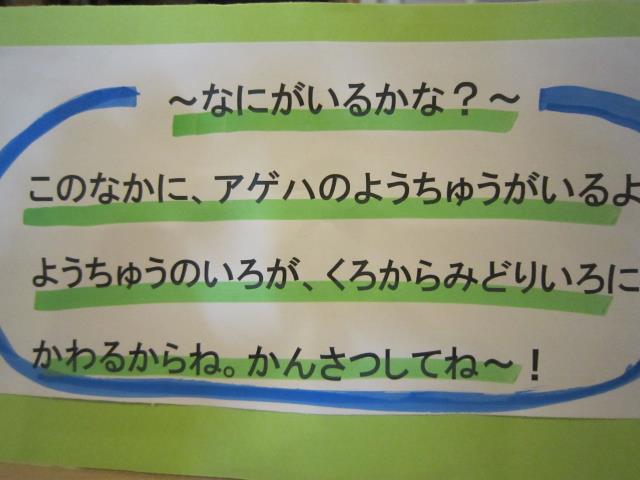 ～なにがいるかな？～
このなかに、アゲハのようちゅうがいるよ
ようちゅうのいろが、くろからみどりいろに
かわるからね。かんさつしてね～！